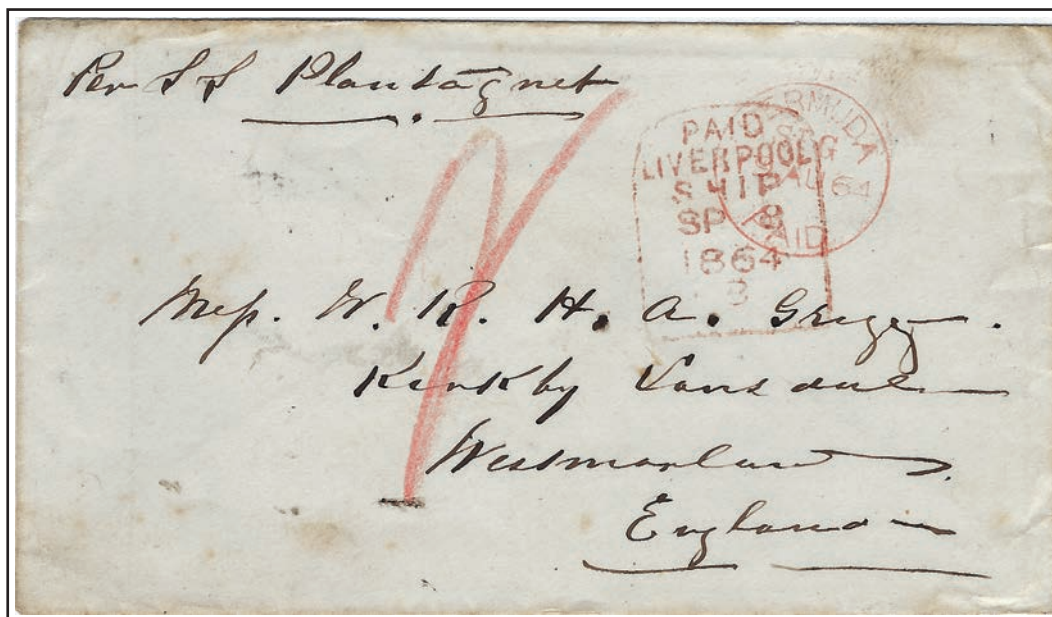 Per S S Plantagnet
PAID
LIVERPOOL
SHIP
SP 8
1864
BERMUDA
AU 64
PAID
Mess. W. R. H. A. Gregg.
Kirkby Lonsdale
Westmorland
England